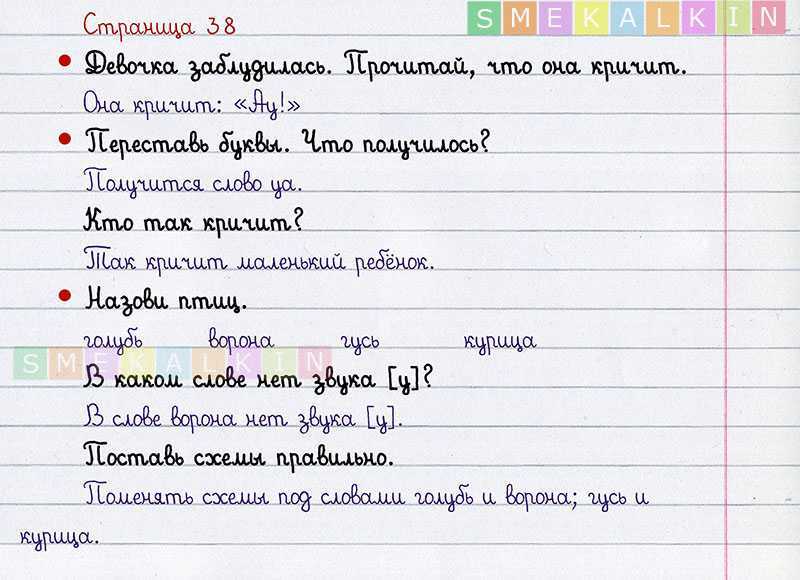 SMEKALKIN
Страница 38
• Девочка заблудилась. Прочитай, что она кричит.
Она кричит: «Ау!»
• Переставь буквы. Что получилось?
Получится слово уа.
Кто так кричит?
Так кричит маленький ребёнок.
• Назови птиц.
голубь ворона гусь курица
SMEKALKIN
В каком слове нет звука [у]?
В слове ворона нет звука [у].
Поставь схемы правильно.
Поменять схемы под словами голубь и ворона; гусь и
курица.